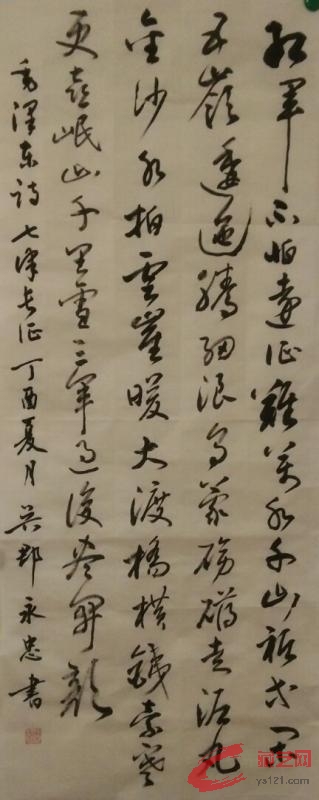 红军不怕远征难万水千山只等闲
五岭逶迤腾细浪乌蒙磅礴走泥丸
金沙水拍云崖暖大渡桥横铁索寒
更喜岷山千里雪三军过后尽开颜
毛泽东诗七律长征丁酉夏月吴郡永忠书
ys121.com